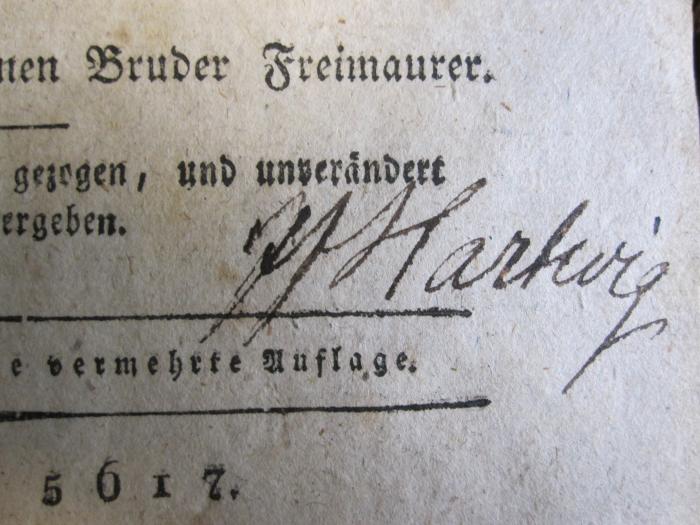 nen Bruder Freimaurer.
gezogen, und unverändert
ergeben.
Hartwig
e vermehrte Auflage.
5617.